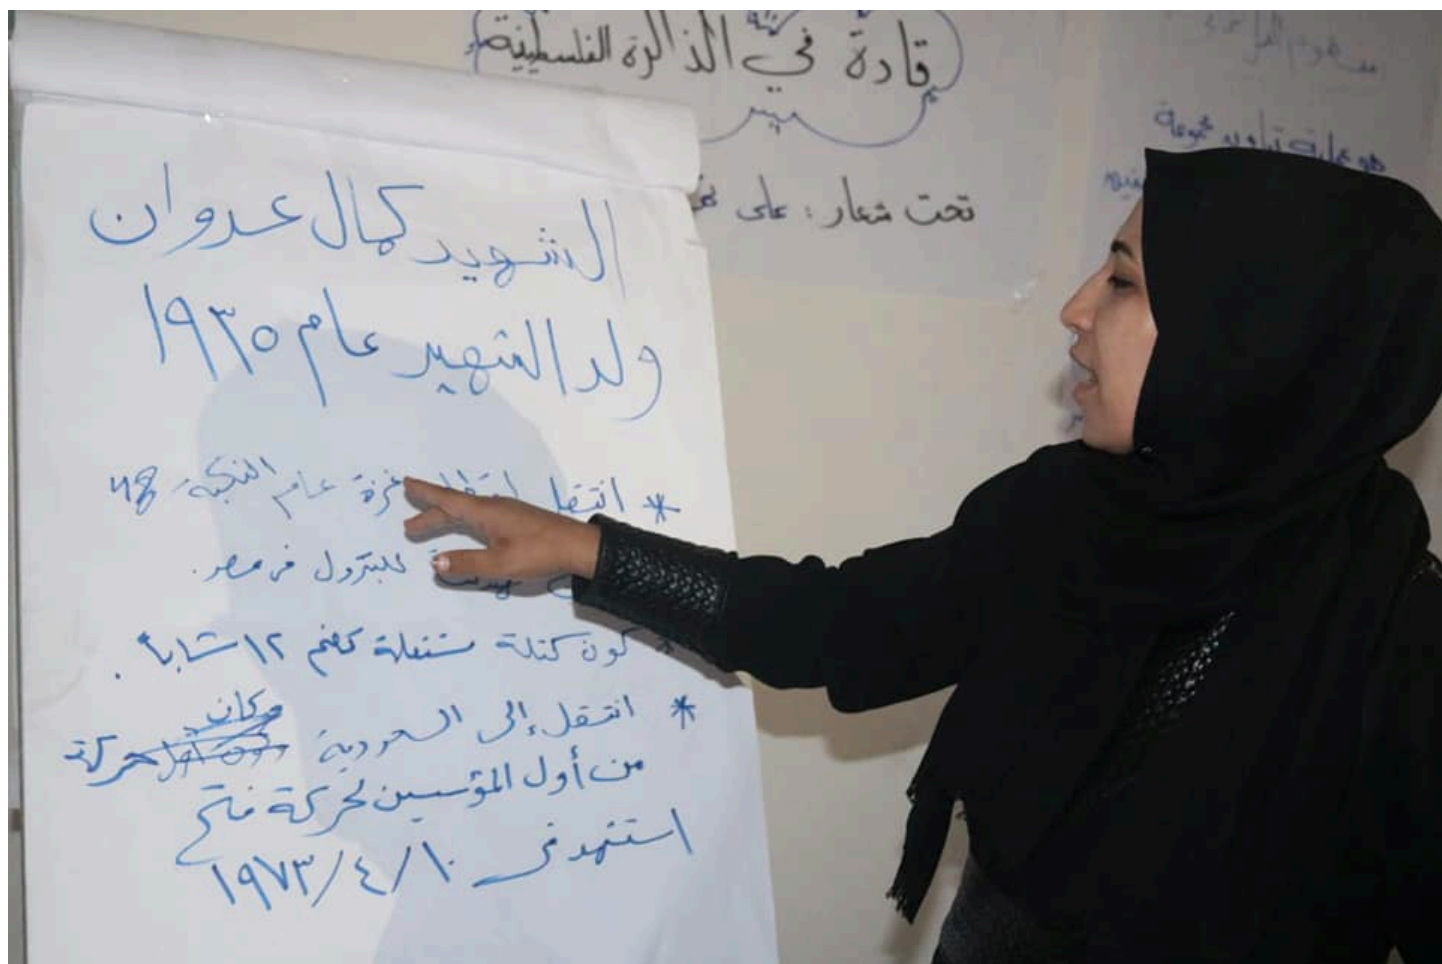 قادة في الذاكرة الفلسطينية
تحت شعار : على
هو عملية تكوين مجموعة
الشهيد كمال عدوان
ولد الشهيد عام ١٩٣٥
* انتقل غزة عام النكبة 48
للبترول في مصر .
كون كتلة مستقلة تضم ١٢ شاباً .
* انتقل إلى السعودية وكان حركة
من أول المؤسسين لحركة فتح
استشهد في ١٠/٤/١٩٧٣